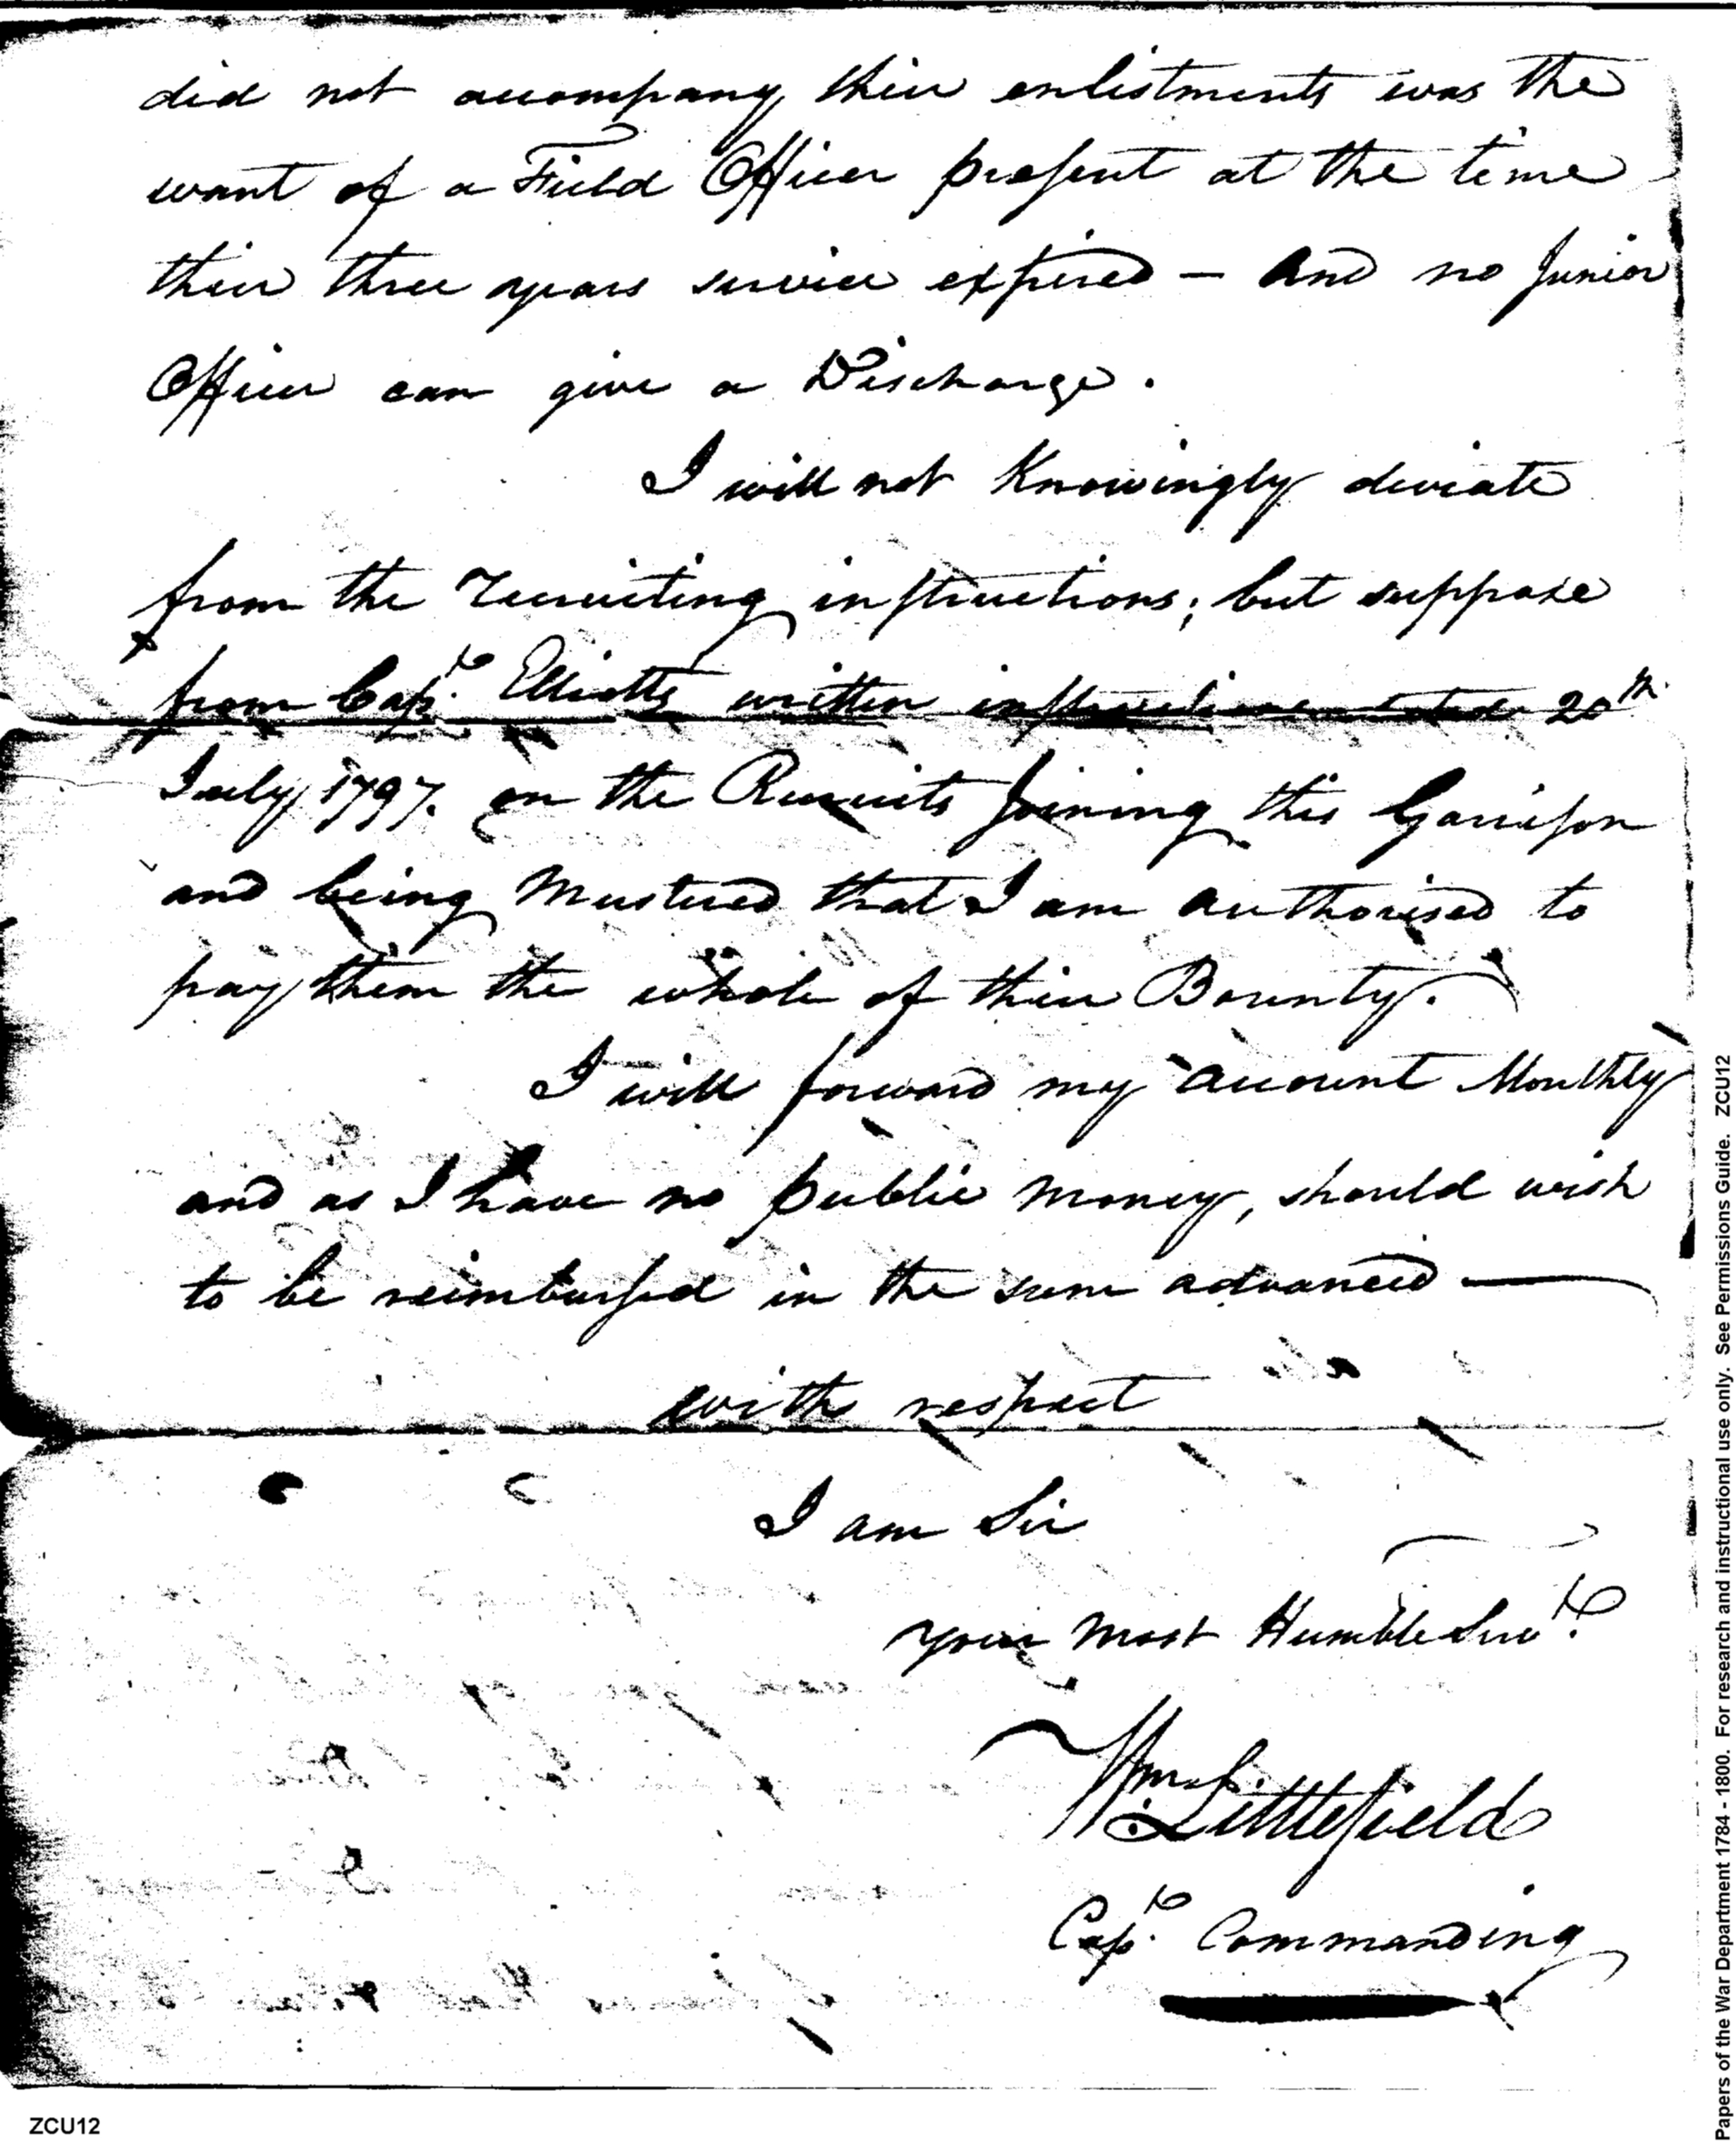 did not accompany their enlistments was the
want of a Field Officer present at the time
their three years service expired — and no Junior
Officer can give a Discharge.
I will not Knowingly deviate
from the recruiting instructions; but suppose
from Capt. Elliotts written instructions dated 20th.
July 1797. on the Recruits Joining this Garrison
and being Mustered that I am authorised to
pay them the whole of their Bounty.
I will forward my account Monthly
and as I have no public money, should wish
to be reimbursed in the sum advanced —
with respect
I am Sir
your most Humble Servt.
Wm. Littlefield
Capt. Commanding
ZCU12
Papers of the War Department 1784 - 1800. For research and instructional use only. See Permissions Guide. ZCU12